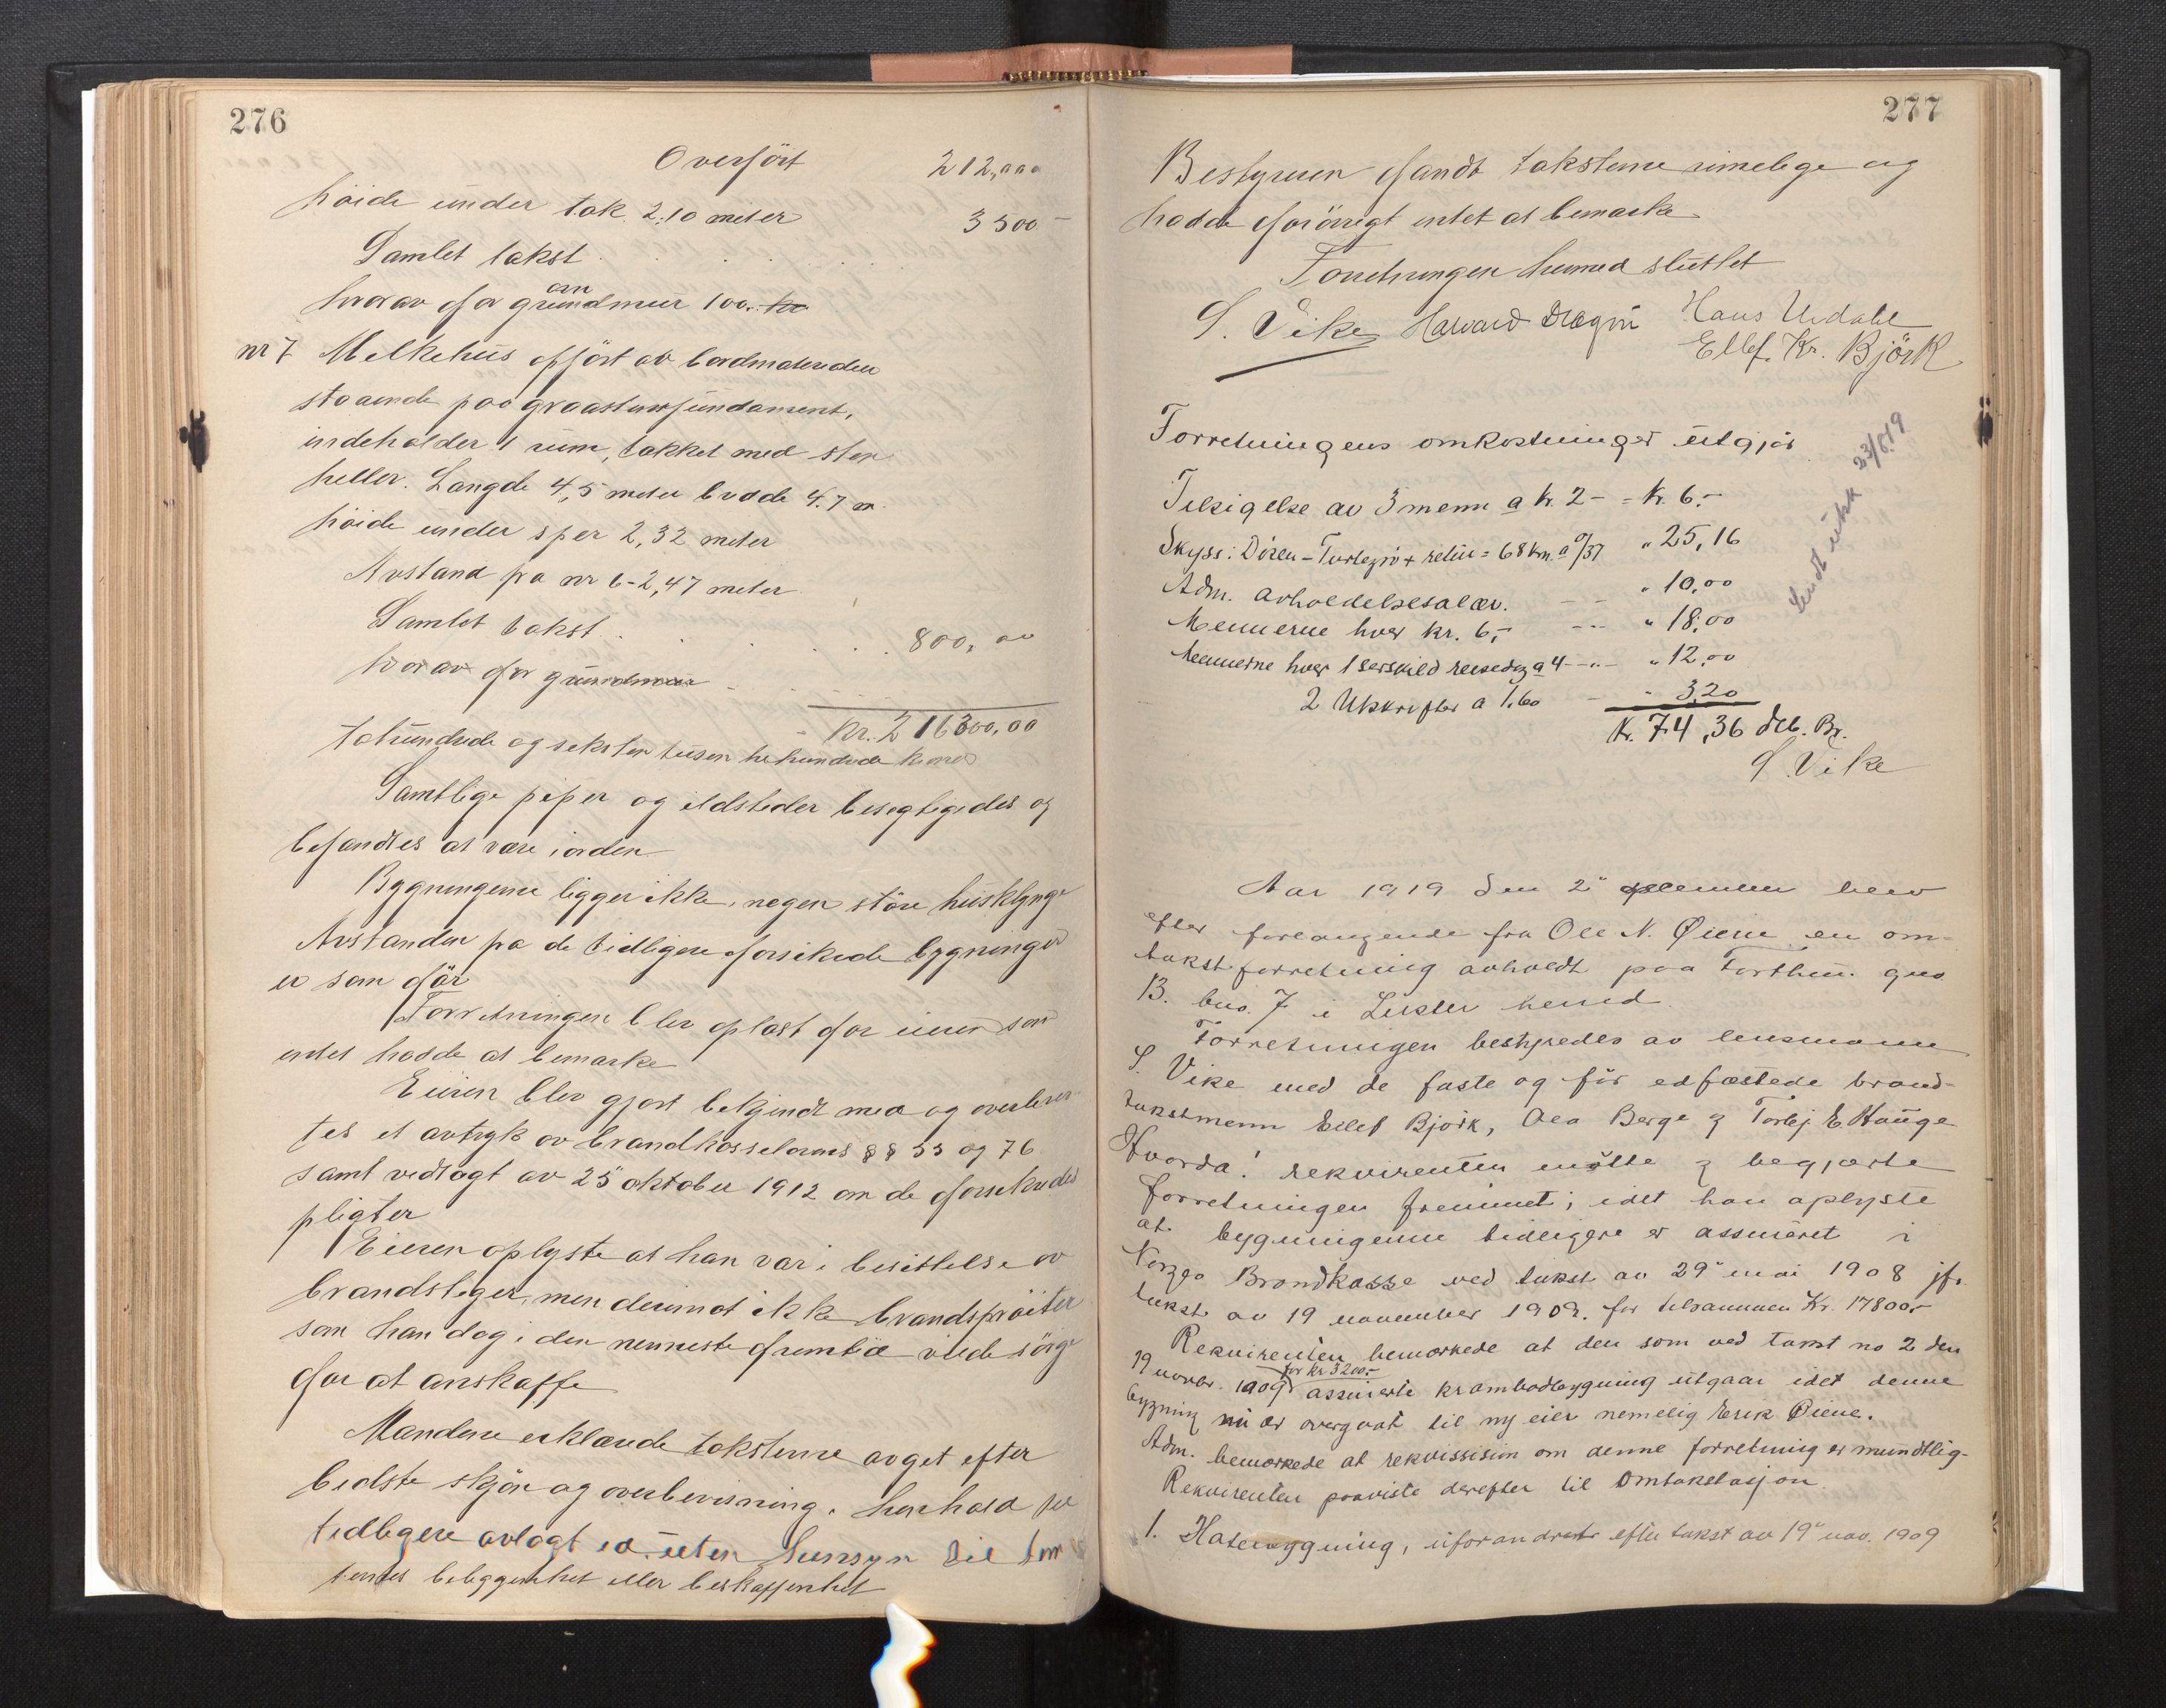 276
Overført 212,000
höide under tak 2.10 meter 3500 -
Samlet takst
hvorav for grundmur 100.
nr 7 Melkehus opført av bordmaterialer
staaende paa graastensfundament,
indeholder 1 rum, takket med sten
heller. Længde 4,5 meter bredde 4.7 m.
höide under sper 2,32 meter
Avstand fra nr 6 - 2,47 meter
Samlet takst 800,00
hvorav for grundmur
Kr. 216300,00
tohundrede og seksten tusen trehundrede kroner
Samtlige piper og ildsteder besegtigedes og
befandtes at være i orden
Bygningerne ligger ikke i nogen större husklynge
Avstanden fra de tidligere forsikrede bygninger
er som för
Forretningen blev oplæst for eieren som
intet hadde at bemærke
Eieren blev gjort bekjendt med og overlever
tes et avtryk av brandkasselovens §§ 53 og 76
samt vedtægt av 25 oktober 1912 om de forsikredes
pligter
Eieren oplyste at han var i besittelse av
brandstiger, men derimot ikke brandspröiter
som han dog i den nærmeste fremtid vilde sörge
for at anskaffe
Mændene erklærede taksterne avget efter
bedste skjön og overbevisning i henhold til
tidligere avlagt ed uten hensyn til tom
tenes beliggenhet eller beskaffenhet
277
Bestyreren fandt taksterne rimelige og
hadde forövrigt intet at bemærke
Forretningen hermed sluttet
S. Vike Havard Drægni Hans Urdahl
Ellef. Kr. Björk
Forretningens omkostninger utgjör
Tilsigelse av 3 menn a kr. 2 - = Kr. 6.-
Skyss: Dören - Turtegrö + retur = 68 km. a 0/37 " 25,16
Adm. avholdelsesalær. " 10,00
Mennerne hver kr. 6,- " 18,00
Mennerne hver 1 serskild reisedag a 4 - " 12,00
2 Utskrifter a 1.60 " 3,20
Kr. 74,36 Deb. Br.
S. Vike
Sendt utskr 23/8 19
Aar 1919 den 2" desember blev
efter forlangende fra Ole N. Øiene en om-
takstforretning avholdt paa Forthun. gno
13. bno. 7 i Luster herred
Forretningen bestyredes av lensmann
S. Vike med de faste og för edfæstede brand-
takstmenn Eilef Björk, Ola Berge & Torbj E. Hauge
Hvorda! rekvirenten mötte & begjærte
forretningen fremmet; idet han oplyste
at bygningerne tidligere er assureret i
Norges Brandkasse ved takst av 29" mai 1908 jfr.
takst av 19 november 1909. for tilsammen Kr. 17800.-
Rekvirenten bemerkede at den som ved takst no 2 den
19 novbr. 1909 for kr 3200.- assurerte krambodbygning utgaar idet denne
bygning nu er overgaat til ny eier nemelig Erik Øiene.
Adm. bemerkede at rekvissision om denne forretning er mundtlig-
Rekvirenten paaviste derefter til Omtakstasjon
1. Husebygning, uforandret efter takst av 19" nov. 1909